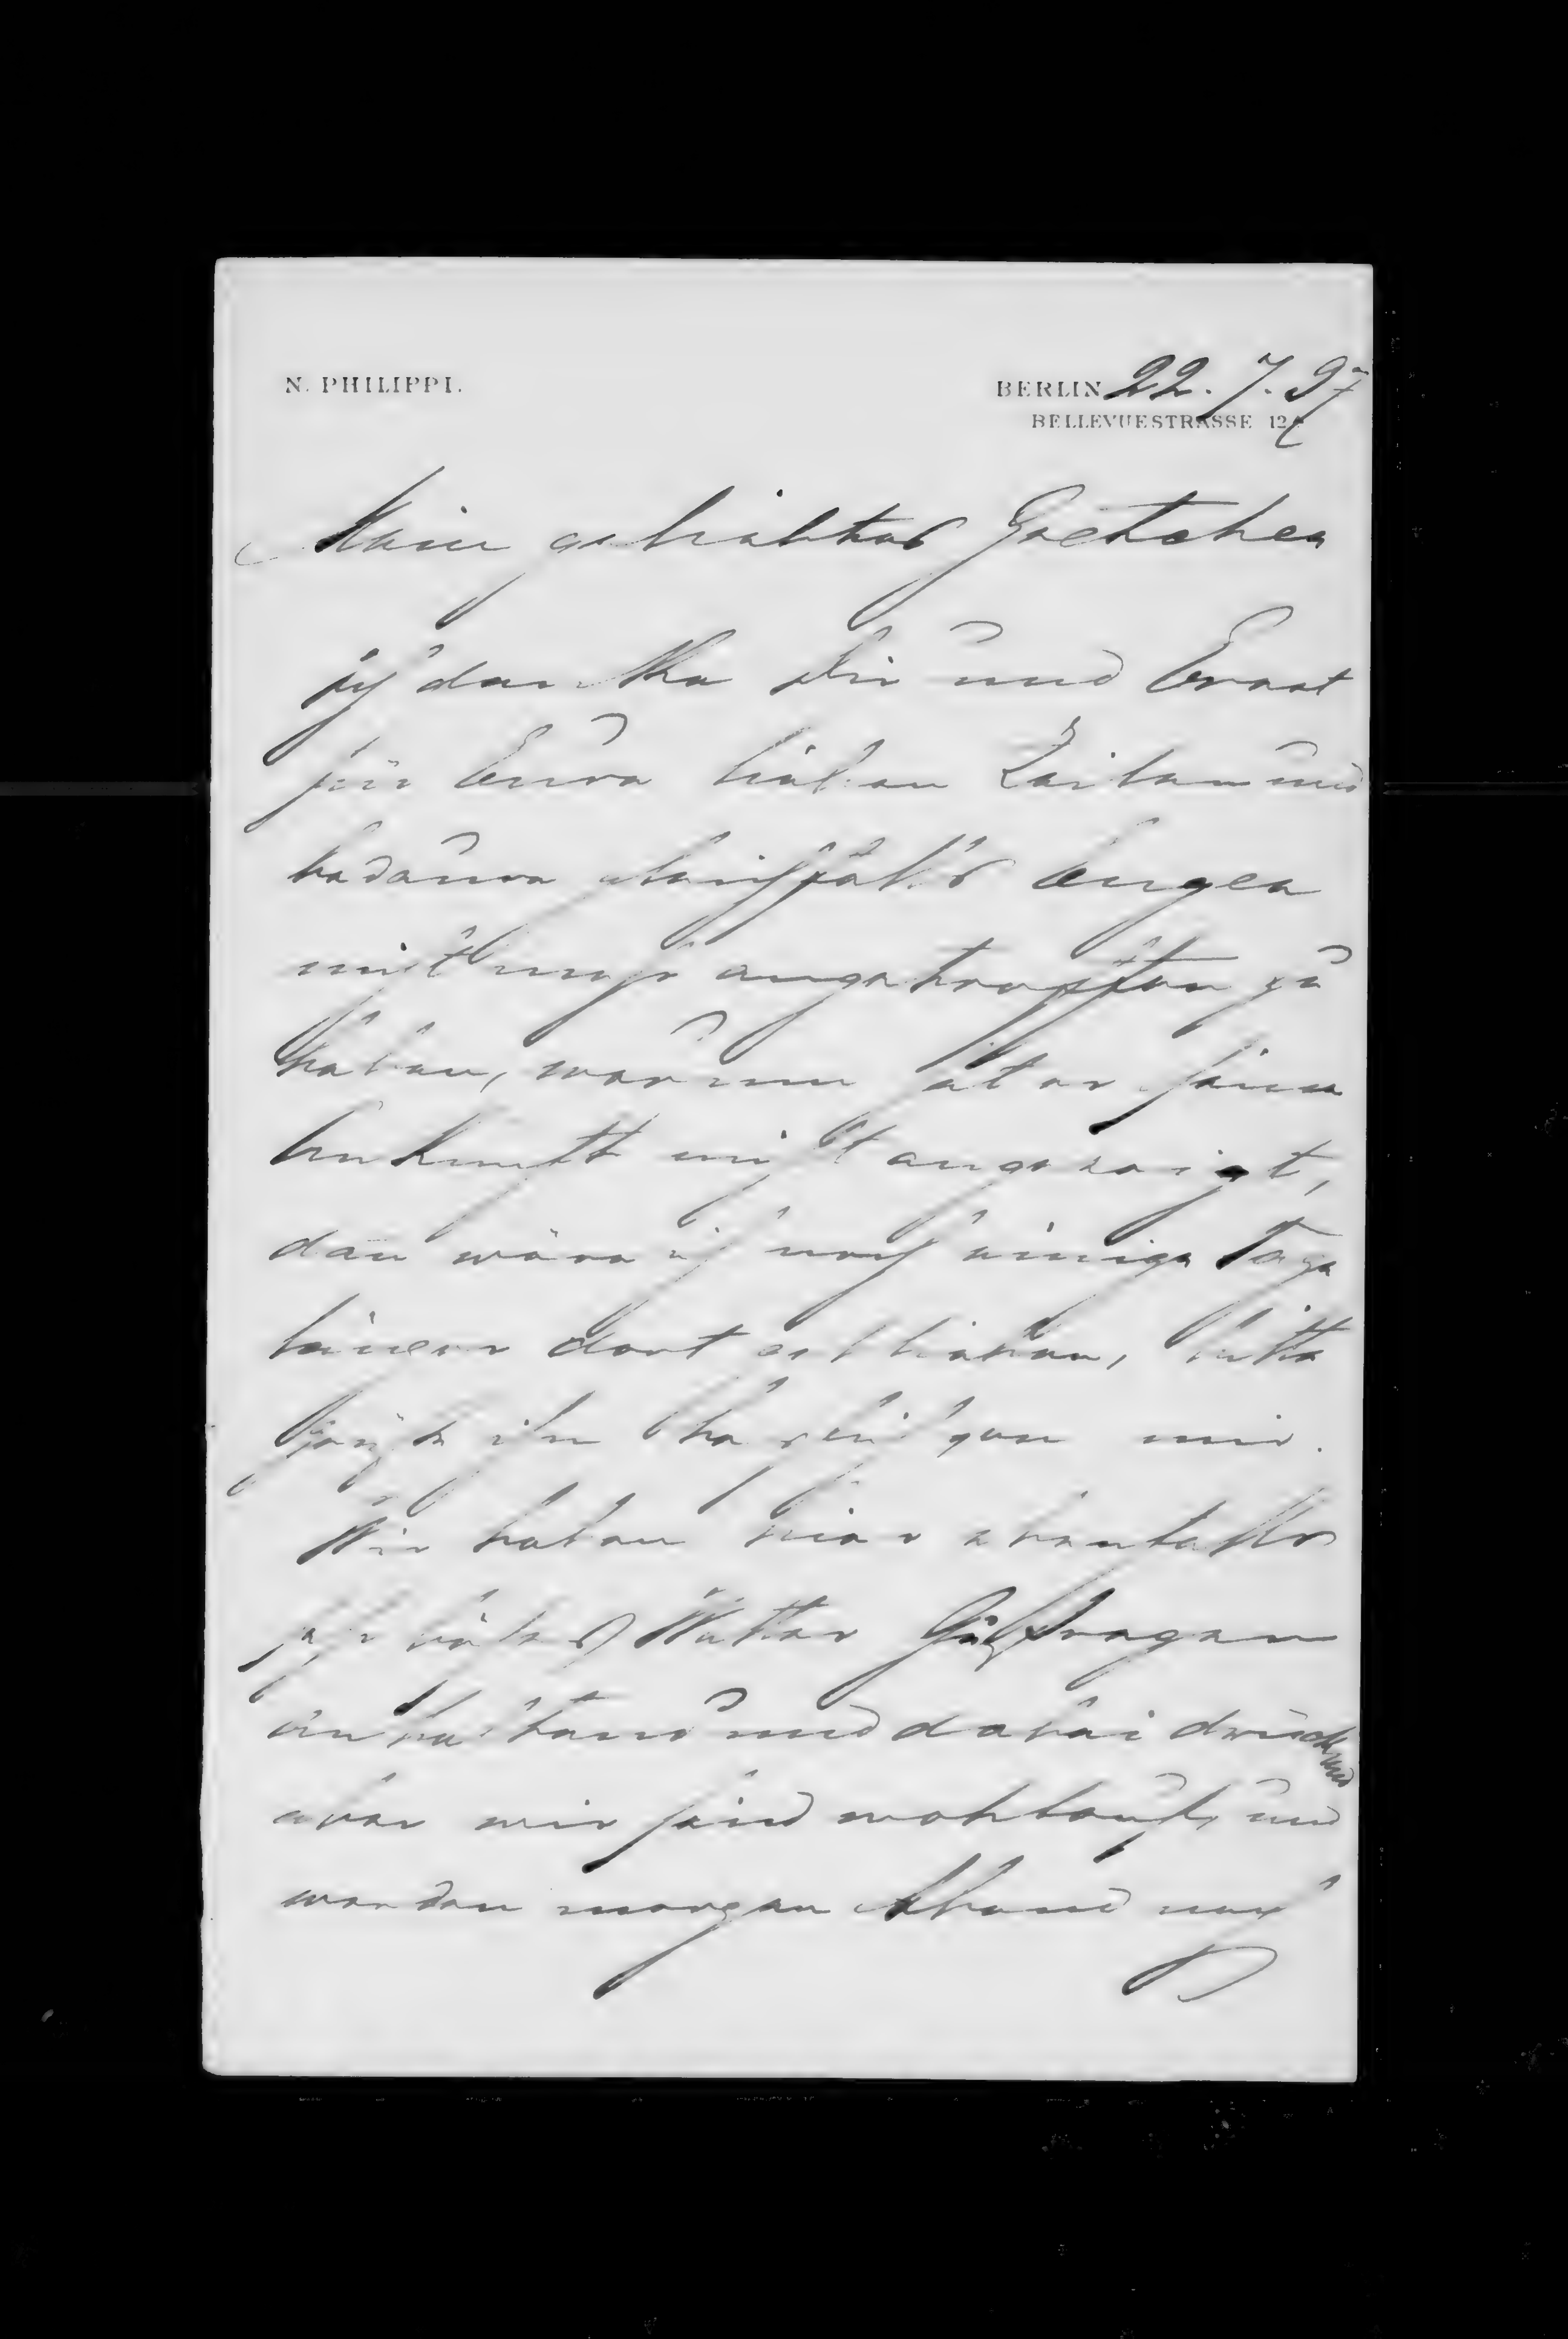 N. PHILIPPI.
BERLIN 22. 7. 97
BELLEVUESTRASSE 12
Mein geliebtes Gretchen
ich danke Dir und Ernst
für Eure lieben Zeilen und
bedaure gleichfalls Eugen
nicht mehr angetroffen zu
haben, warum hat er seine
Ankunft nicht angezeigt,
dan wäre ich noch einige Tage
länger dort geblieben, bitte
ihn von mir.
Wir haben hier ebenfalls
sehr Wetter
anhaltend und dabei drückend
aber wir sind wohlauf, und
werden morgen Abend nach